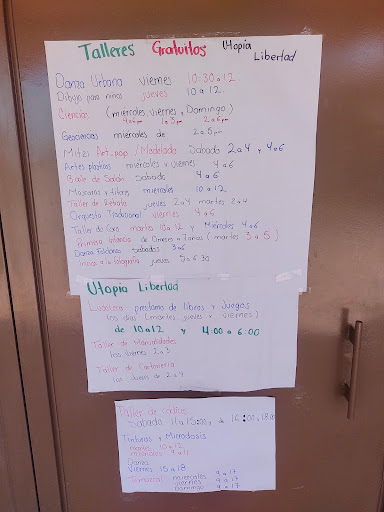 Talleres Gratuitos Utopía Libertad
Danza Urbana viernes 10:30 a 12
Dibujo para niños jueves 10 a 12
Ciencias (miércoles, viernes, Domingo)
4 a 6 pm 1 a 3 pm 2 a 6 pm
Geociencias miércoles de 2 a 5 pm
Mites Art. pop /Modelado Sabado 2 a 4 y 4 a 6
Artes plasticas miercoles y viernes 4 a 6
Baile de Salón sabado 4 a 6
Mascaras y titeres miercoles 10 a 12
Taller de jueves 2 a 4 martes 2 a 4
Orquesta Tradicional viernes 4 a 6
Taller de martes 10 a 12 y Miercoles 4 a 6
Primera infancia de 0 meses a 7 años (martes 3 a 5)
Danza Folclorica sabado 3 a 6
a la fotografia jueves 5 a 6:30
Utopía Libertad
prestamo de libros y Juegos
los días (martes, jueves y viernes)
de 10 a 12 y 4:00 a 6:00
Taller de Manualidades
los 2 a 3
Taller de Cartoneria
los Jueves de 2 a 4
Taller de
Sabado 11 a 15:00, de 16:00 a 18:00
Tinturas y Microdosis
martes 10 a 12
miercoles 9 a 11
Granja
Viernes 15 a 18
Temazcal miercoles 9 a 17
viernes 9 a 17
Domingo 9 a 17